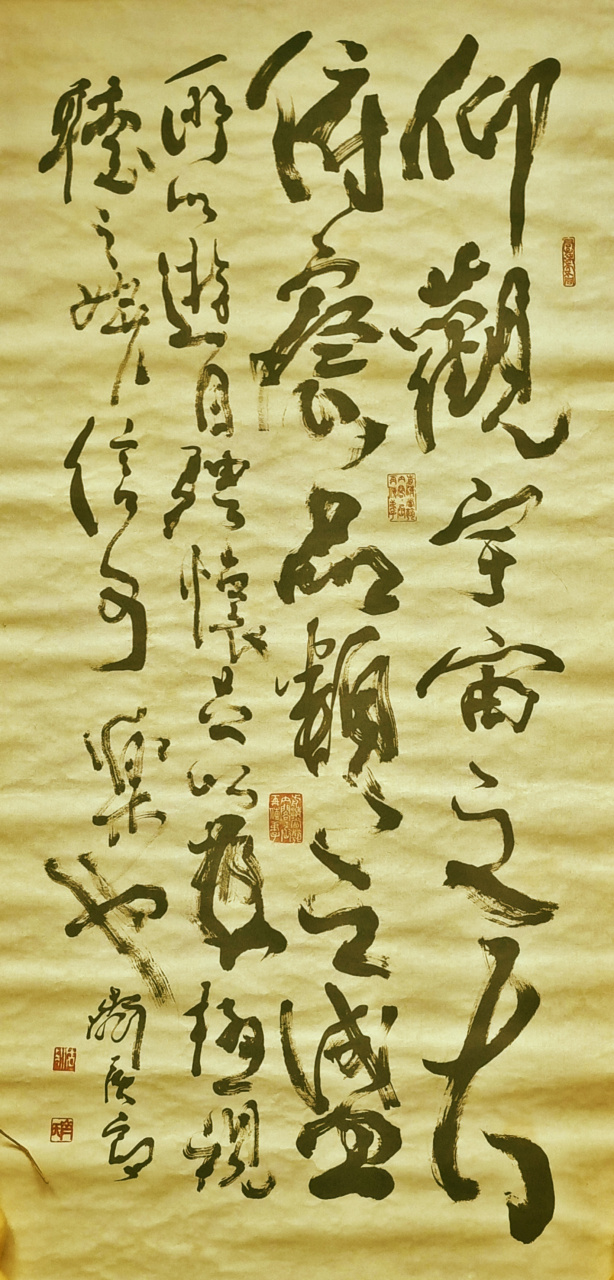 仰觀宇宙之大
俯察品類之盛
所以遊目騁懷足以極視
聽之娛信可樂也